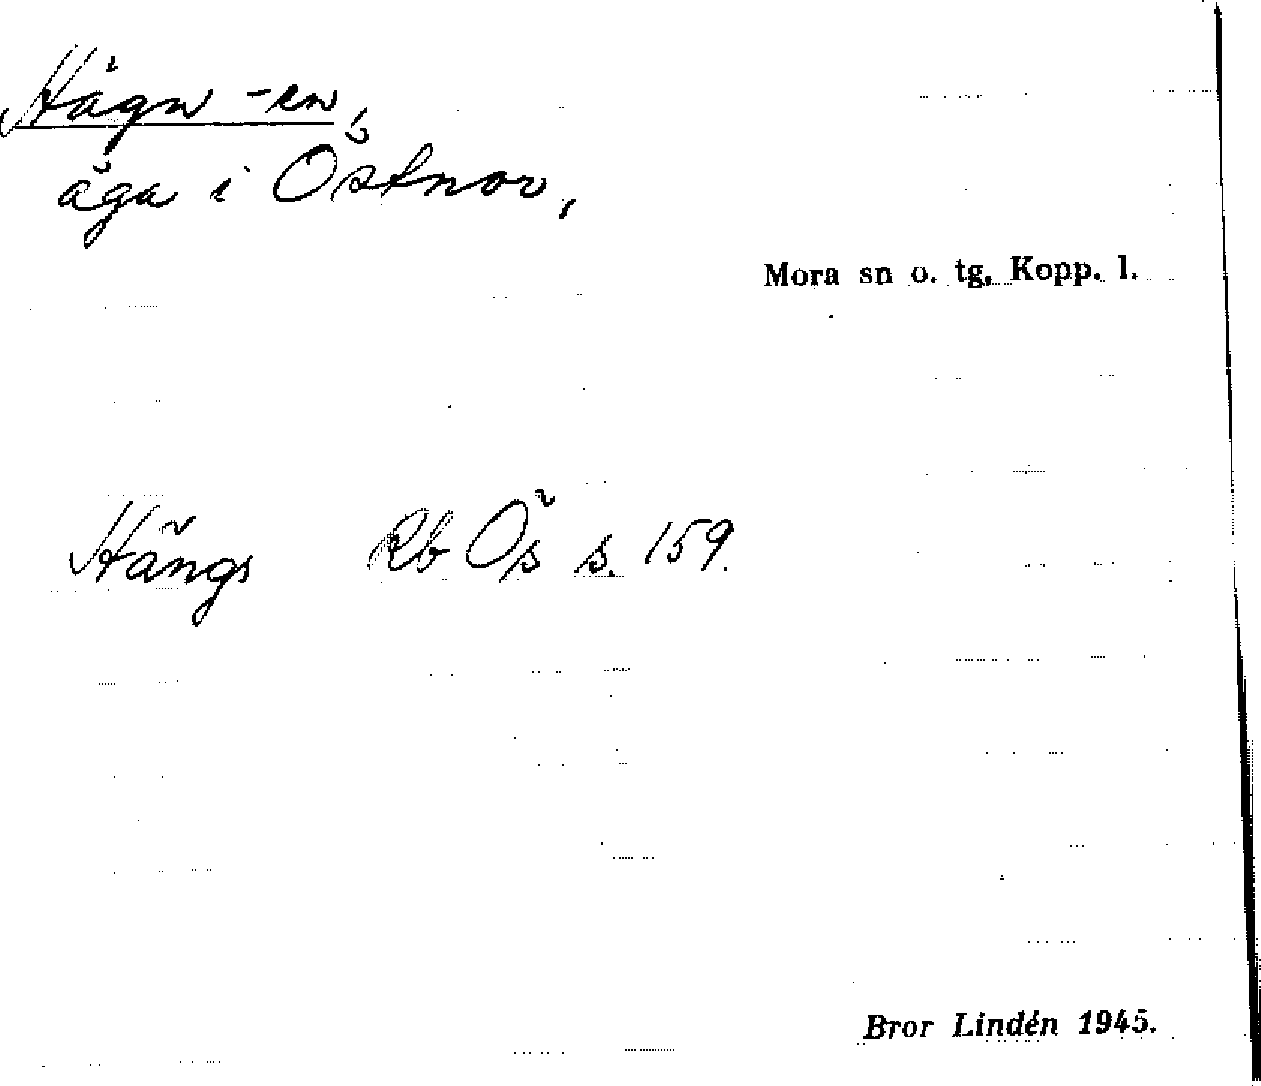 Hägn -en,
äga i Östnor,
Mora sn o. tg, Kopp. l.
Hängs Rb Ös s. 159.
Bror Lindén 1945.